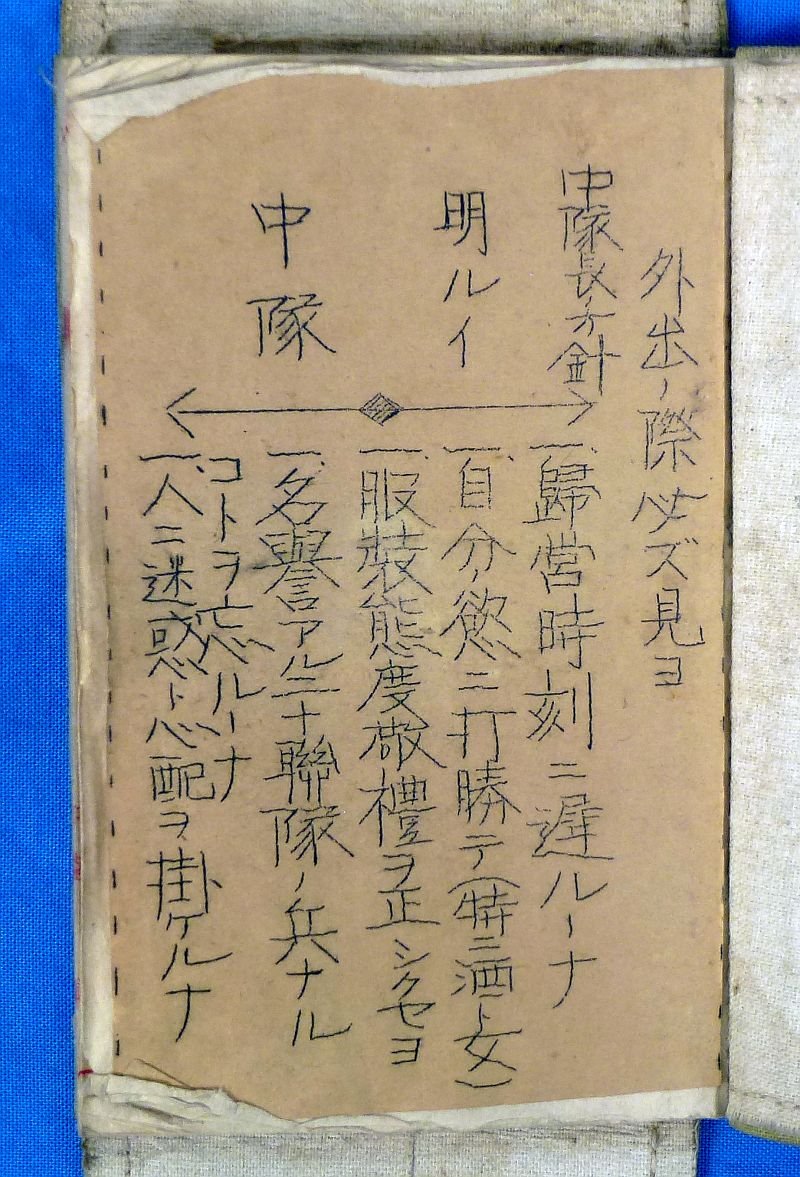 外出ノ際必ズ見ヨ
中隊長方針
明ルイ
中隊
一、歸営時刻ニ遲ルーナ
一、自分ノ慾ニ打勝テ(特ニ酒ト女)
一、服装態度敬禮ヲ正シクセヨ
一、名譽アル三十聯隊ノ兵ナル
コトヲ忘ルーナ
一、人ニ迷惑ト心配ヲ掛ケルナ